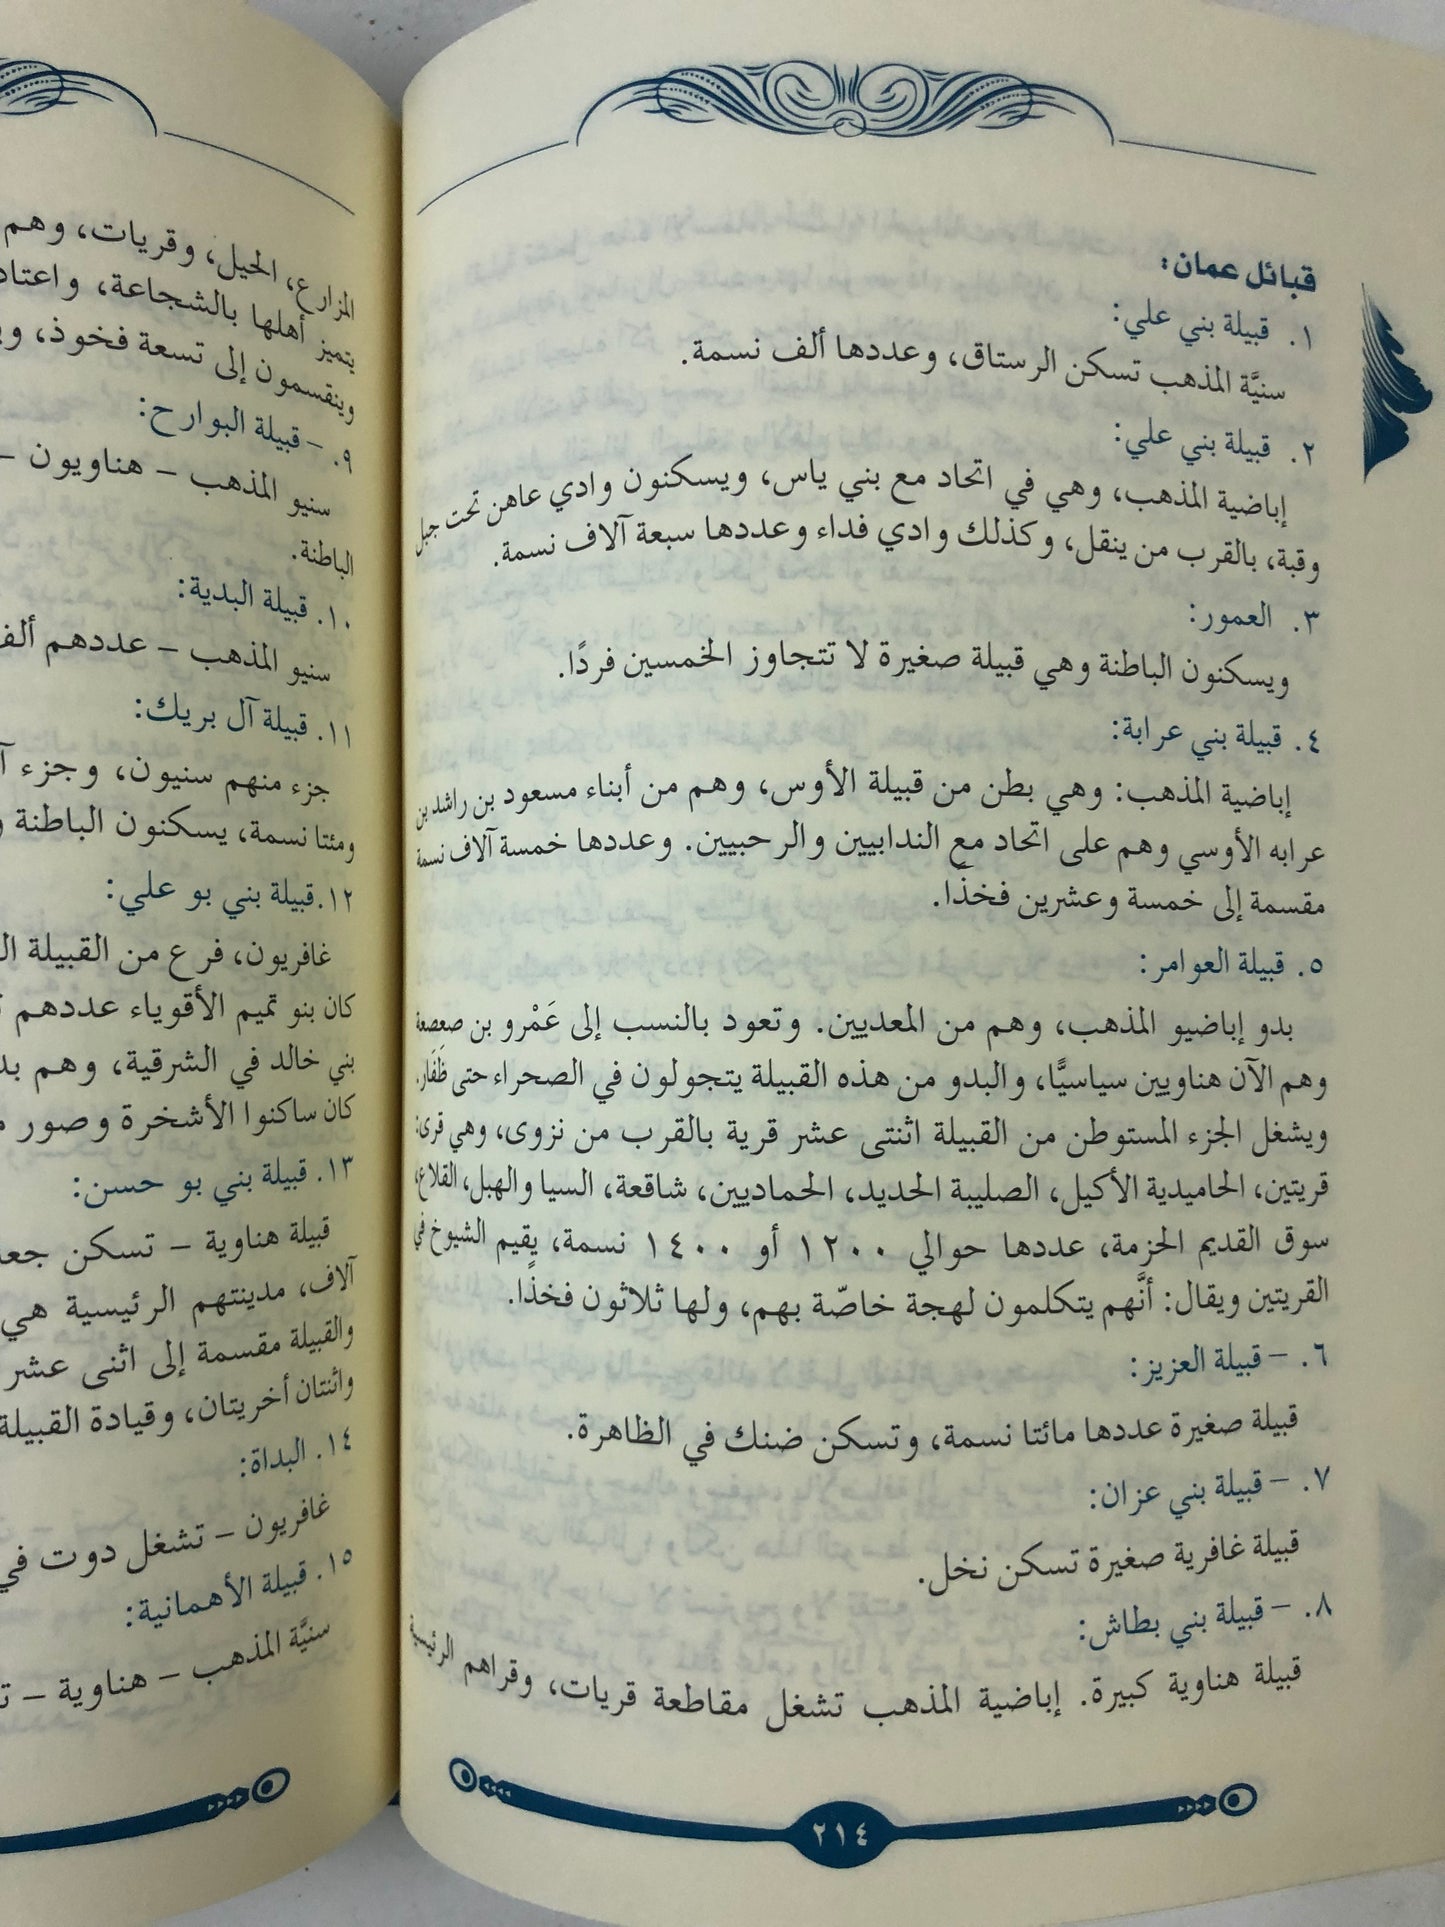 قبائل عمان:
١. قبيلة بني علي:
سنيَّة المذهب تسكن الرستاق، وعددها ألف نسمة.
٢. قبيلة بني علي:
إباضية المذهب، وهي في اتحاد مع بني ياس، ويسكنون وادي عاهن تحت جبل
وقبة، بالقرب من ينقل، وكذلك وادي فداء وعددها سبعة آلاف نسمة.
٣. العمور:
ويسكنون الباطنة وهي قبيلة صغيرة لا تتجاوز الخمسين فردًا.
٤. قبيلة بني عرابة:
إباضية المذهب: وهي بطن من قبيلة الأوس، وهم من أبناء مسعود بن راشد بن
عرابه الأوسي وهم على اتحاد مع الندابيين والرحبيين. وعددها خمسة آلاف نسمة
مقسمة إلى خمسة وعشرين فخذًا.
٥. قبيلة العوامر:
بدو إباضيو المذهب، وهم من المعديين. وتعود بالنسب إلى عَمْرو بن صعصعة
وهم الآن هناويين سياسيًّا، والبدو من هذه القبيلة يتجولون في الصحراء حتى ظَفَار.
ويشغل الجزء المستوطن من القبيلة اثنتى عشر قرية بالقرب من نزوى، وهي قرى:
قريتين، الحاميدية الأكيل، الصليبة الحديد، الحماديين، شاقعة، السيا والهبل، القلاع،
سوق القديم الحزمة، عددها حوالي ١٢٠٠ أو ١٤٠٠ نسمة، يقيم الشيوخ في
القريتين ويقال: أنَّهم يتكلمون لهجة خاصّة بهم، ولها ثلاثون فخذًا.
٦. - قبيلة العزيز:
قبيلة صغيرة عددها مائتا نسمة، وتسكن ضنك في الظاهرة.
٧. - قبيلة بني عزان:
قبيلة غافرية صغيرة تسكن نخل.
٨. - قبيلة بني بطاش:
قبيلة هناوية كبيرة. إباضية المذهب تشغل مقاطعة قريات، وقراهم الرئيسية
٢١٤
المزارع، الحيل، وقريات، وهم
يتميز أهلها بالشجاعة، واعتاد
وينقسمون إلى تسعة فخوذ،
٩. - قبيلة البوارح:
سنيو المذهب - هناويون -
الباطنة.
١٠. قبيلة البدية:
سنيو المذهب - عددهم ألف
١١. قبيلة آل بريك:
جزء منهم سنيون، وجزء
ومئتا نسمة، يسكنون الباطنة
١٢. قبيلة بني بو علي:
غافريون، فرع من القبيلة
كان بنو تميم الأقوياء عددهم
بني خالد في الشرقية، وهم
كان ساكنوا الأشخرة وصور
١٣. قبيلة بني بو حسن:
قبيلة هناوية - تسكن
آلاف، مدينتهم الرئيسية هي
والقبيلة مقسمة إلى اثنى عشر
واثنتان أخريتان، وقيادة القبيلة
١٤. البداة:
غافريون - تشغل دوت في
١٥. قبيلة الأهمانية:
سنيَّة المذهب - هناوية -